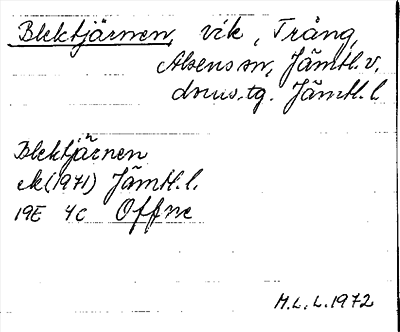 Blektjärnen, vik, Trång,
Alsens sn, Jämtl. v.
doms. tg. Jämtl. l.
Blektjärnen
ek (1971) Jämtl. l.
19E 4c Offne
H. L. L. 1972